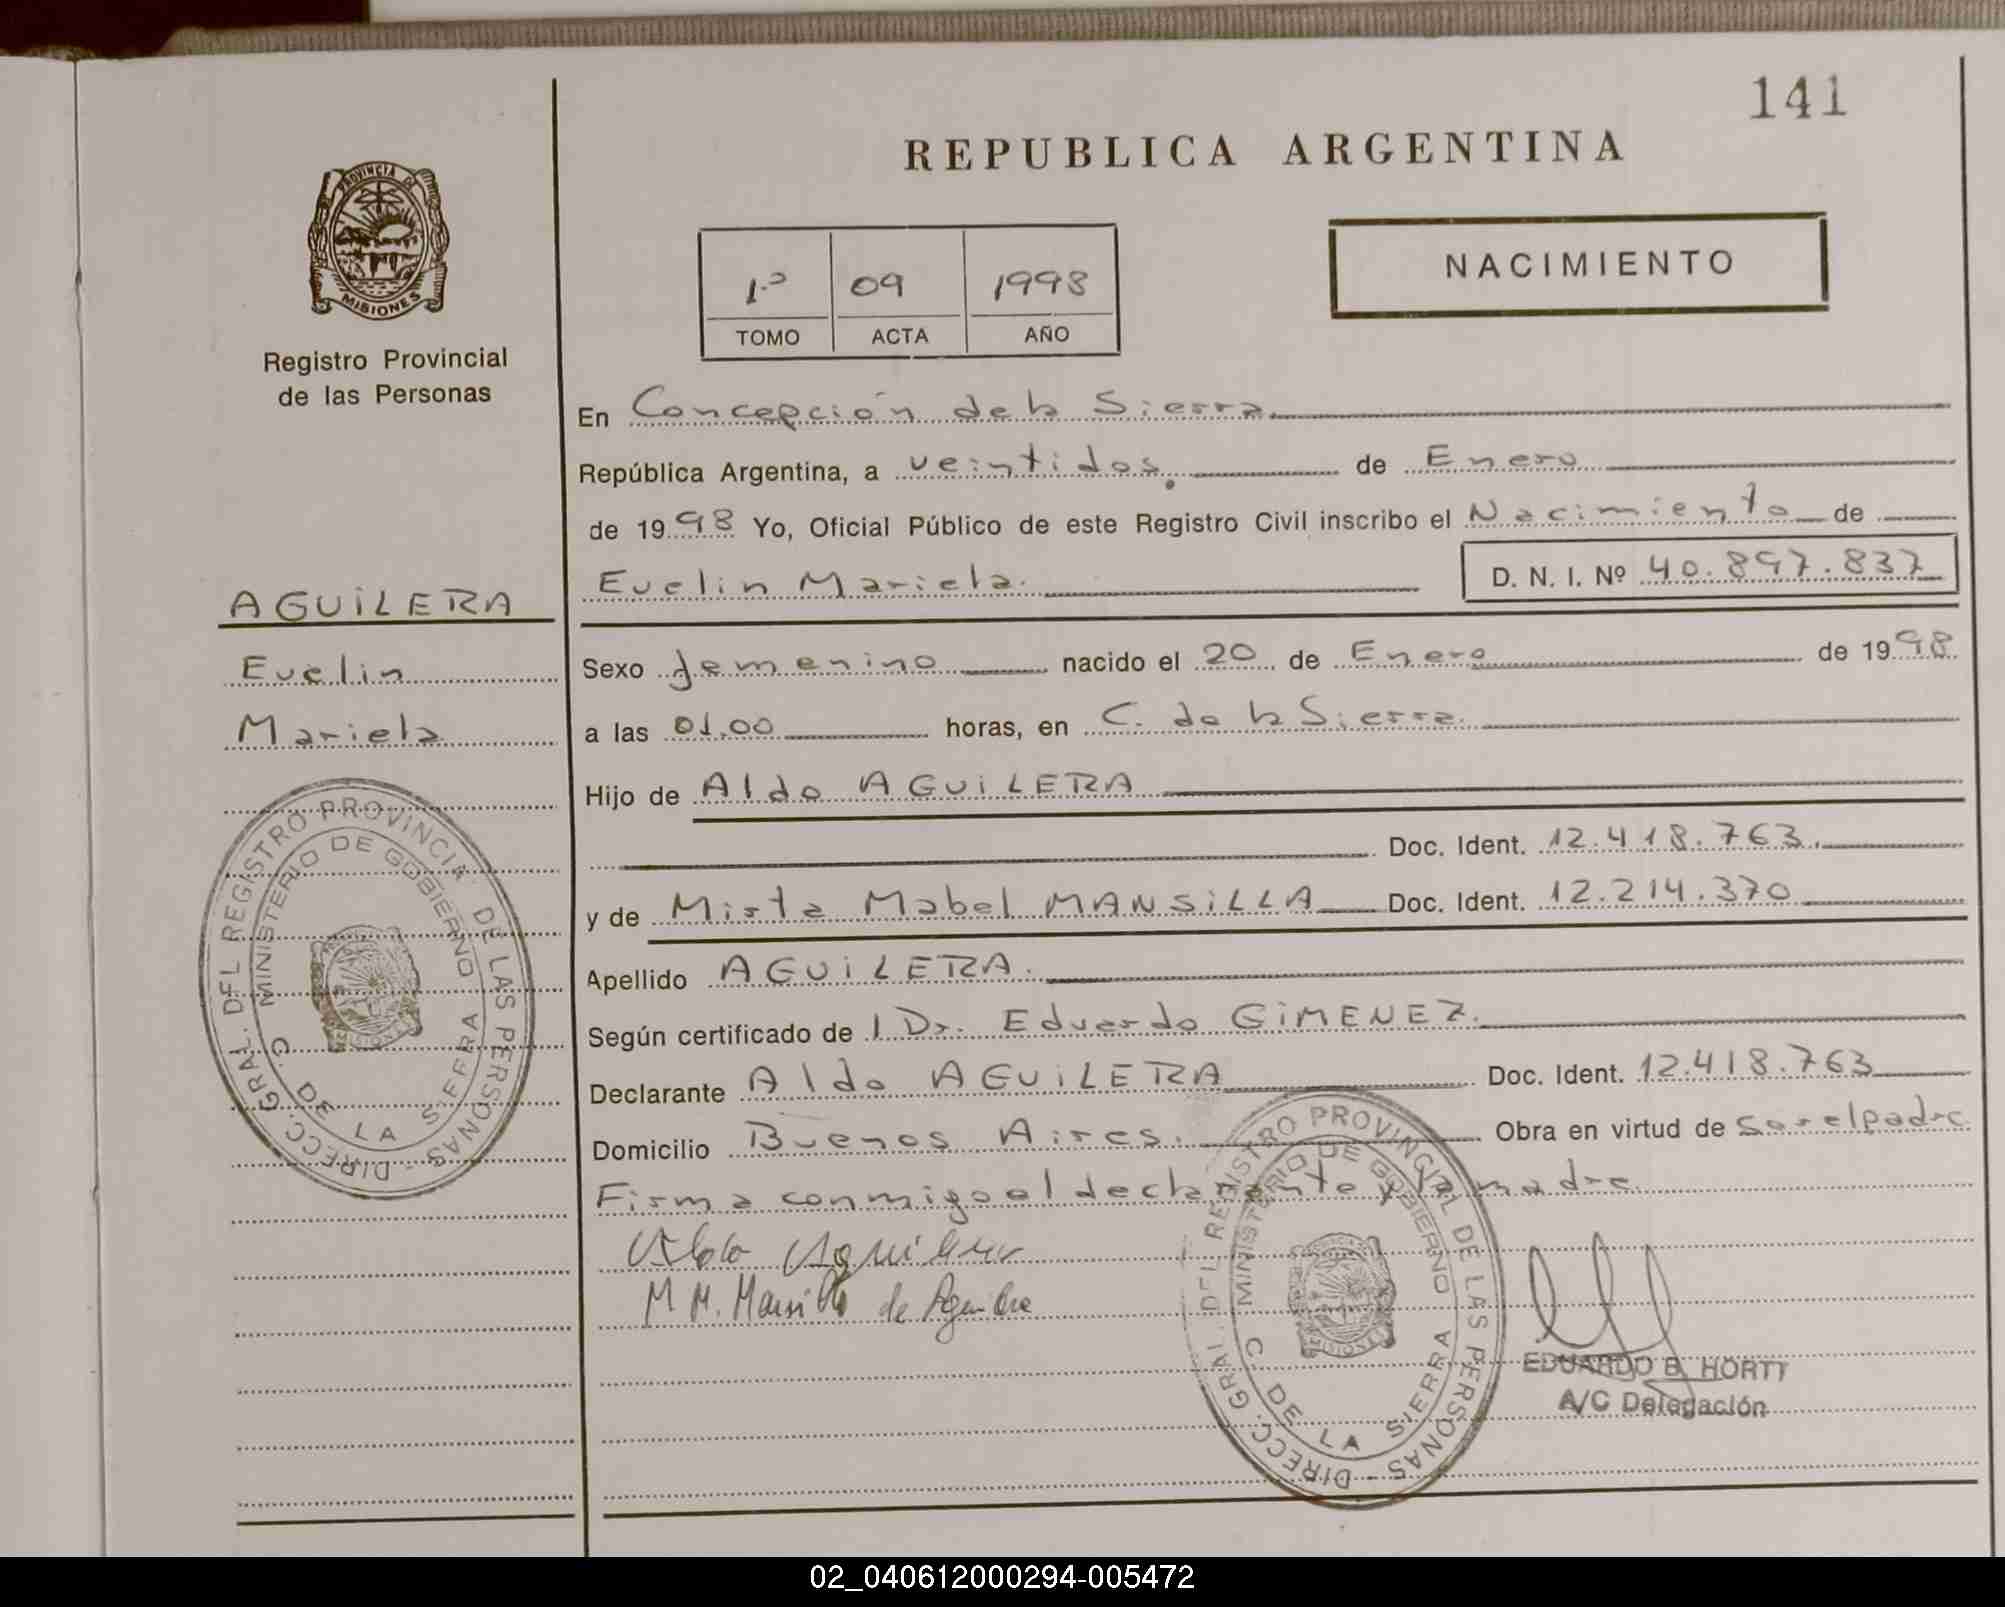 141
REPUBLICA ARGENTINA
PROVINCIA DE MISIONES
Registro Provincial
de las Personas
1º 09 1998
TOMO ACTA AÑO
NACIMIENTO
En Concepción de la Sierra
República Argentina, a veintidos de Enero
de 1998 Yo, Oficial Público de este Registro Civil inscribo el Nacimiento de
Evelin Mariela. D. N. I. Nº 40.897.837
AGUILERA
Evelin
Mariela
Sexo femenino nacido el 20 de Enero de 1998
a las 01.00 horas, en C. de la Sierra.
Hijo de Aldo AGUILERA
Doc. Ident. 12.418.763.
y de Mirta Mabel MANSILLA Doc. Ident. 12.214.370
Apellido AGUILERA.
Según certificado de l Dr. Eduardo GIMENEZ.
Declarante Aldo AGUILERA Doc. Ident. 12.418.763
Domicilio Buenos Aires. Obra en virtud de Ser el padre
Firma conmigo el declarante y la madre
Aldo Aguilera
M M. Mansilla de Aguilera
DIRECC. GRAL. DEL REGISTRO PROVINCIAL DE LAS PERSONAS -
MINISTERIO DE GOBIERNO
C. DE LA SIERRA
DIRECC. GRAL. DEL REGISTRO PROVINCIAL DE LAS PERSONAS -
MINISTERIO DE GOBIERNO
C. DE LA SIERRA
EDUARDO B. HORTT
A/C Delegación
02_040612000294-005472